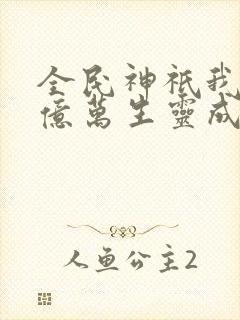 全民神祇我
億萬生靈成
人鱼公主2